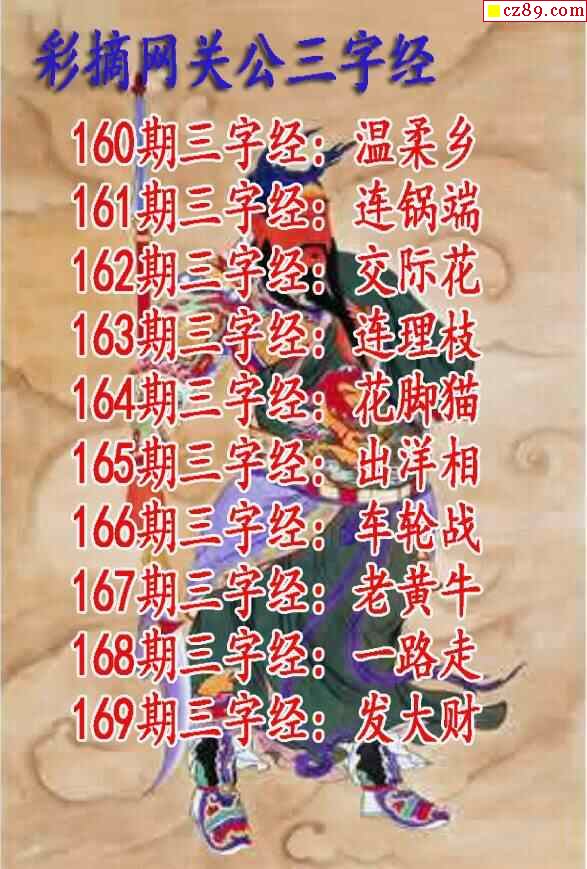 cz89.com
彩摘网关公三字经
160期三字经：温柔乡
161期三字经：连锅端
162期三字经：交际花
163期三字经：连理枝
164期三字经：花脚猫
165期三字经：出洋相
166期三字经：车轮战
167期三字经：老黄牛
168期三字经：一路走
169期三字经：发大财